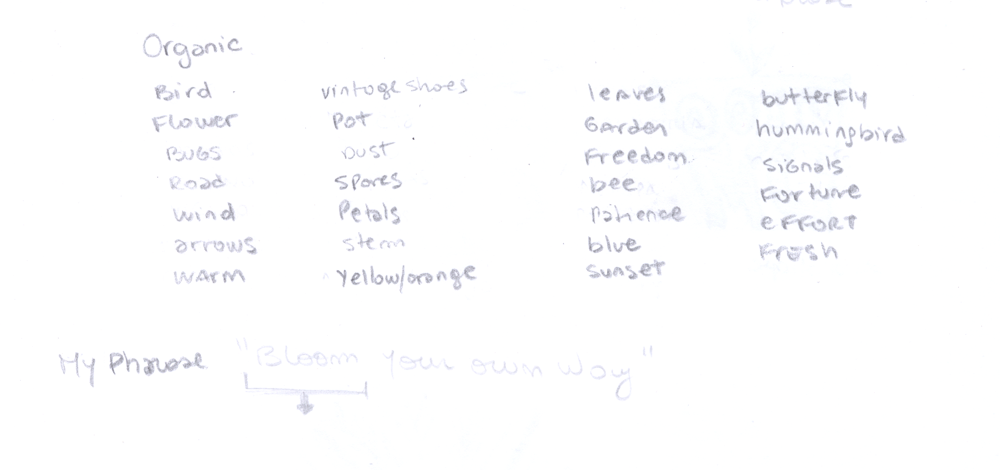 Organic
Bird
Flower
BUGS
Road
wind
arrows
WARM
vintage shoes
Pot
Dust
Spores
Petals
stem
Yellow/orange
leaves
Garden
Freedom
bee
Patience
blue
sunset
butterfly
hummingbird
Signals
Fortune
EFFORT
FRESH
My Phrase "Bloom your own way"